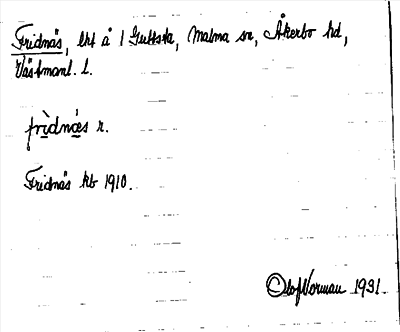 Fridnäs, lht å 1 Guttsta, Malma sn, Åkerbo hd,
Västmanl. l.
frìdnä́s r.
Fridnäs kb 1910.
Olof Norman 1931.